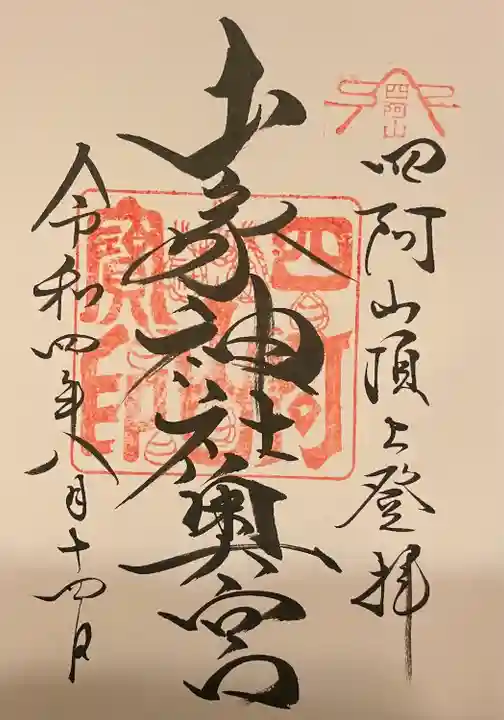 四阿山
四阿山頂上登拝
山家神社奥宮
四阿
寶印
令和四年八月十四日